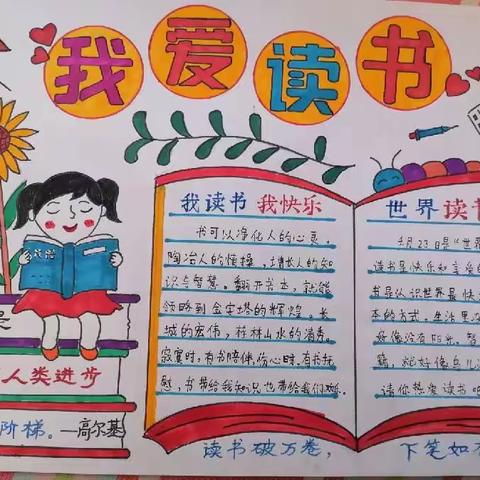 我爱读书
我读书 我快乐
书可以净化人的心灵,
陶冶人的情操，增长人的知
识与智慧。翻开书本，就能
领略到金字塔的辉煌，长
城的宏伟，桂林山水的清秀。
寂寞时，有书陪伴，伤心时，有书抚
慰，书带给我知识也带给我们欢乐。
世界读书
4月23日是“世界
读书是快乐和享受的
书是认识世界最快
本的方式。生活里没
好像没有阳光，智
籍，就好像鸟儿没
请你热爱读书吧
人类进步
阶梯。—高尔基
读书破万卷，
下笔如有